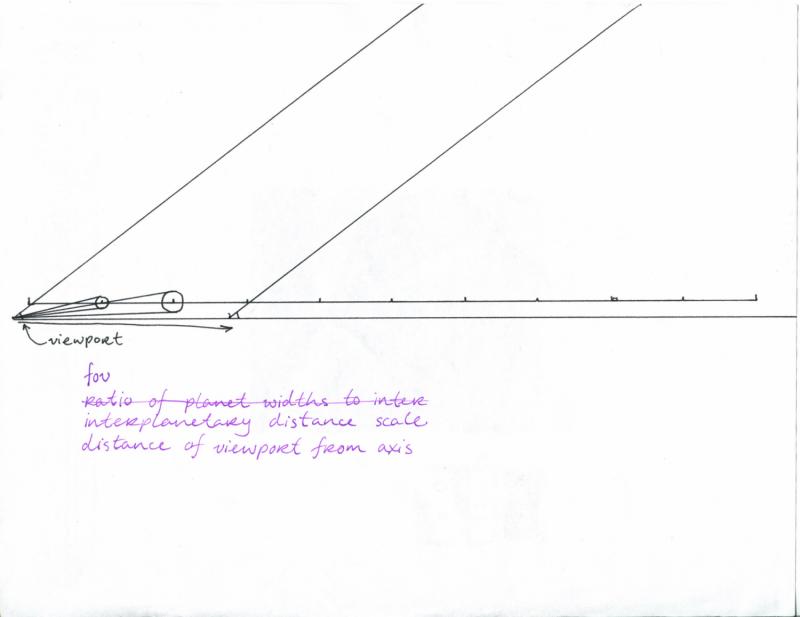 viewport
fov
ratio of planet widths to inter
interplanetary distance scale
distance of viewport from axis